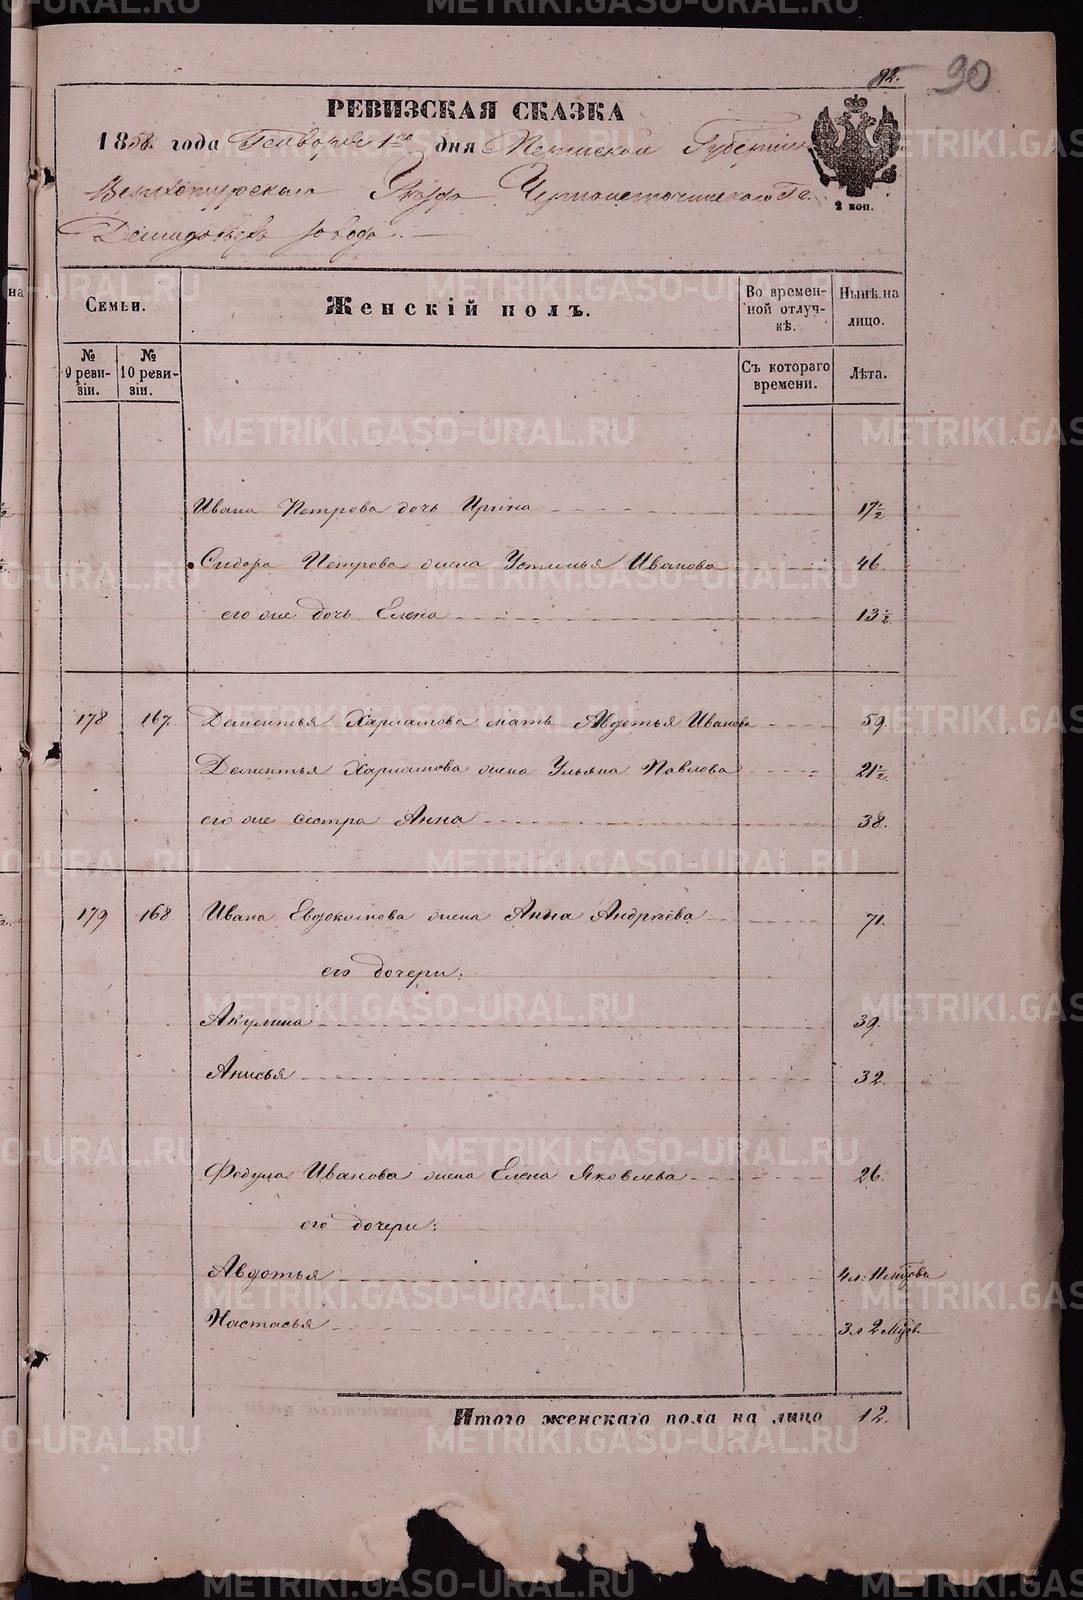 82. 90
РЕВИЗСКАЯ СКАЗКА
1858 года Генваря 1го дня Пермской Губернии
Верхотурскаго Уезда Черноисточинскаго Гг.
Демидовых завода.
Семьи. Женскій полъ. Во временной отлучкѣ. Нынѣ на лицо.
№ 9 ревизіи. № 10 ревизіи. Съ котораго времени. Лѣта.
Ивана Петрова дочь Ирина 17½
Сидора Петрова жена Устинья Иванова 46.
его же дочь Елена 13½
178 167. Дементья Харламова мать Авдотья Иванова 59.
Дементья Харламова жена Ульяна Павлова 21½
его же сестра Анна 38.
179 168 Ивана Евдокимова жена Анна Андрѣева 71.
его дочери:
Акулина 39.
Анисья 32.
Федула Иванова жена Елена Яковлева 26.
его дочери:
Авдотья 4 л: 11 мѣсовъ
Настасья 3 л 2 мѣсв.
Итого женскаго пола на лицо 12.
METRIKI.GASO-URAL.RU